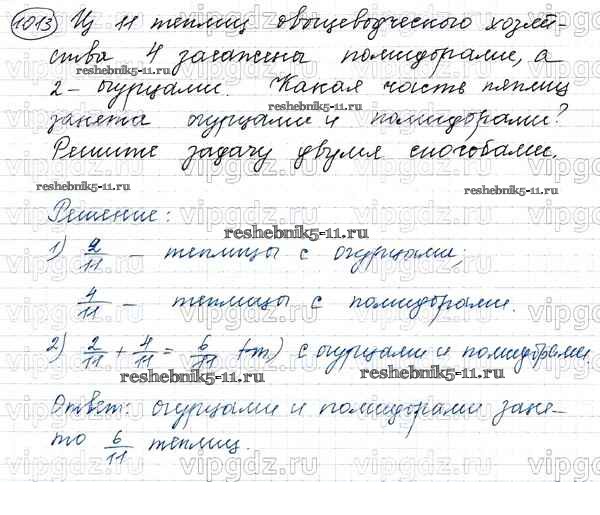 1013 Из 11 теплиц овощеводческого хозяй-
ства 4 засажены помидорами, а
reshebnik5-11.ru
2 - огурцами. Какая часть теплиц
reshebnik5-11.ru
занята огурцами и помидорами?
Решите задачу двумя способами.
reshebnik5-11.ru reshebnik5-11.ru
Решение:
reshebnik5-11.ru
1) 2/11 - теплицы с огурцами;
4/11 - теплицы с помидорами.
2) 2/11 + 4/11 = 6/11 (т) с огурцами и помидорами
reshebnik5-11.ru reshebnik5-11.ru
Ответ: огурцами и помидорами заня-
то 6/11 теплиц.
vipgdz.ru vipgdz.ru vipgdz.ru